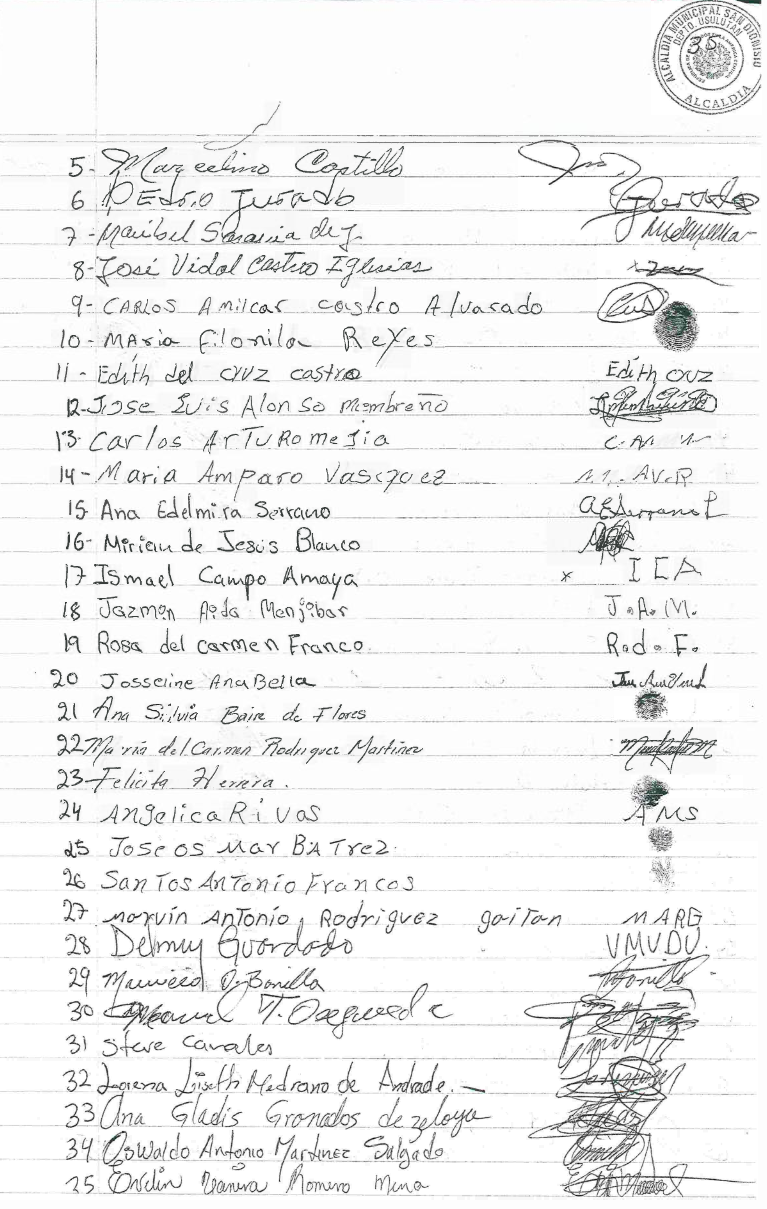 ALCALDIA MUNICIPAL SAN DIONISIO
DEPTO. USULUTAN
35
ALCALDIA
5- Marcelino Castillo
6 PEdro Jurado
7 - Maribel Sarabia de J.
8- José Vidal Castro Iglesias
9- CARLOS Amilcar castro Alvarado
10- MAria Filonila ReYes
11 - Edith del cruz castro Edith cruz
12- Jose Luis Alonso Membreño
13- Carlos ArTURo meJia
14 - Maria Amparo Vasquez AV.R
15 Ana Edelmira Serrano AESerrano L
16- Miriam de Jesus Blanco
17 Ismael Campo Amaya x ICA
18 Jazmin Aida Menjibar J.A.M.
19 Rosa del carmen Franco R.d.F.
20 Josseline AnaBella
21 Ana Silvia Baire de Flores
22 Maria del Carmen Rodriguez Martinez
23- Felicita Herrera.
24 AngelicaRivas AMS
25 JoseosMar BATrez.
26 SanTos AnTonio Francos
27 marvin AnTonio Rodriguez gaitan MARG
28 Delmy Guardado VMVDU.
29 Mauricio O. Bonilla Bonilla
30 Manuel T. Osegueda
31 Steve Canales
32 Lorena Liseth Medrano de Andrade.
33 Ana Gladis Granados de zelaya
34 Oswaldo Antonio Martinez Salgado
35 Evelin Yanira Romero Mena